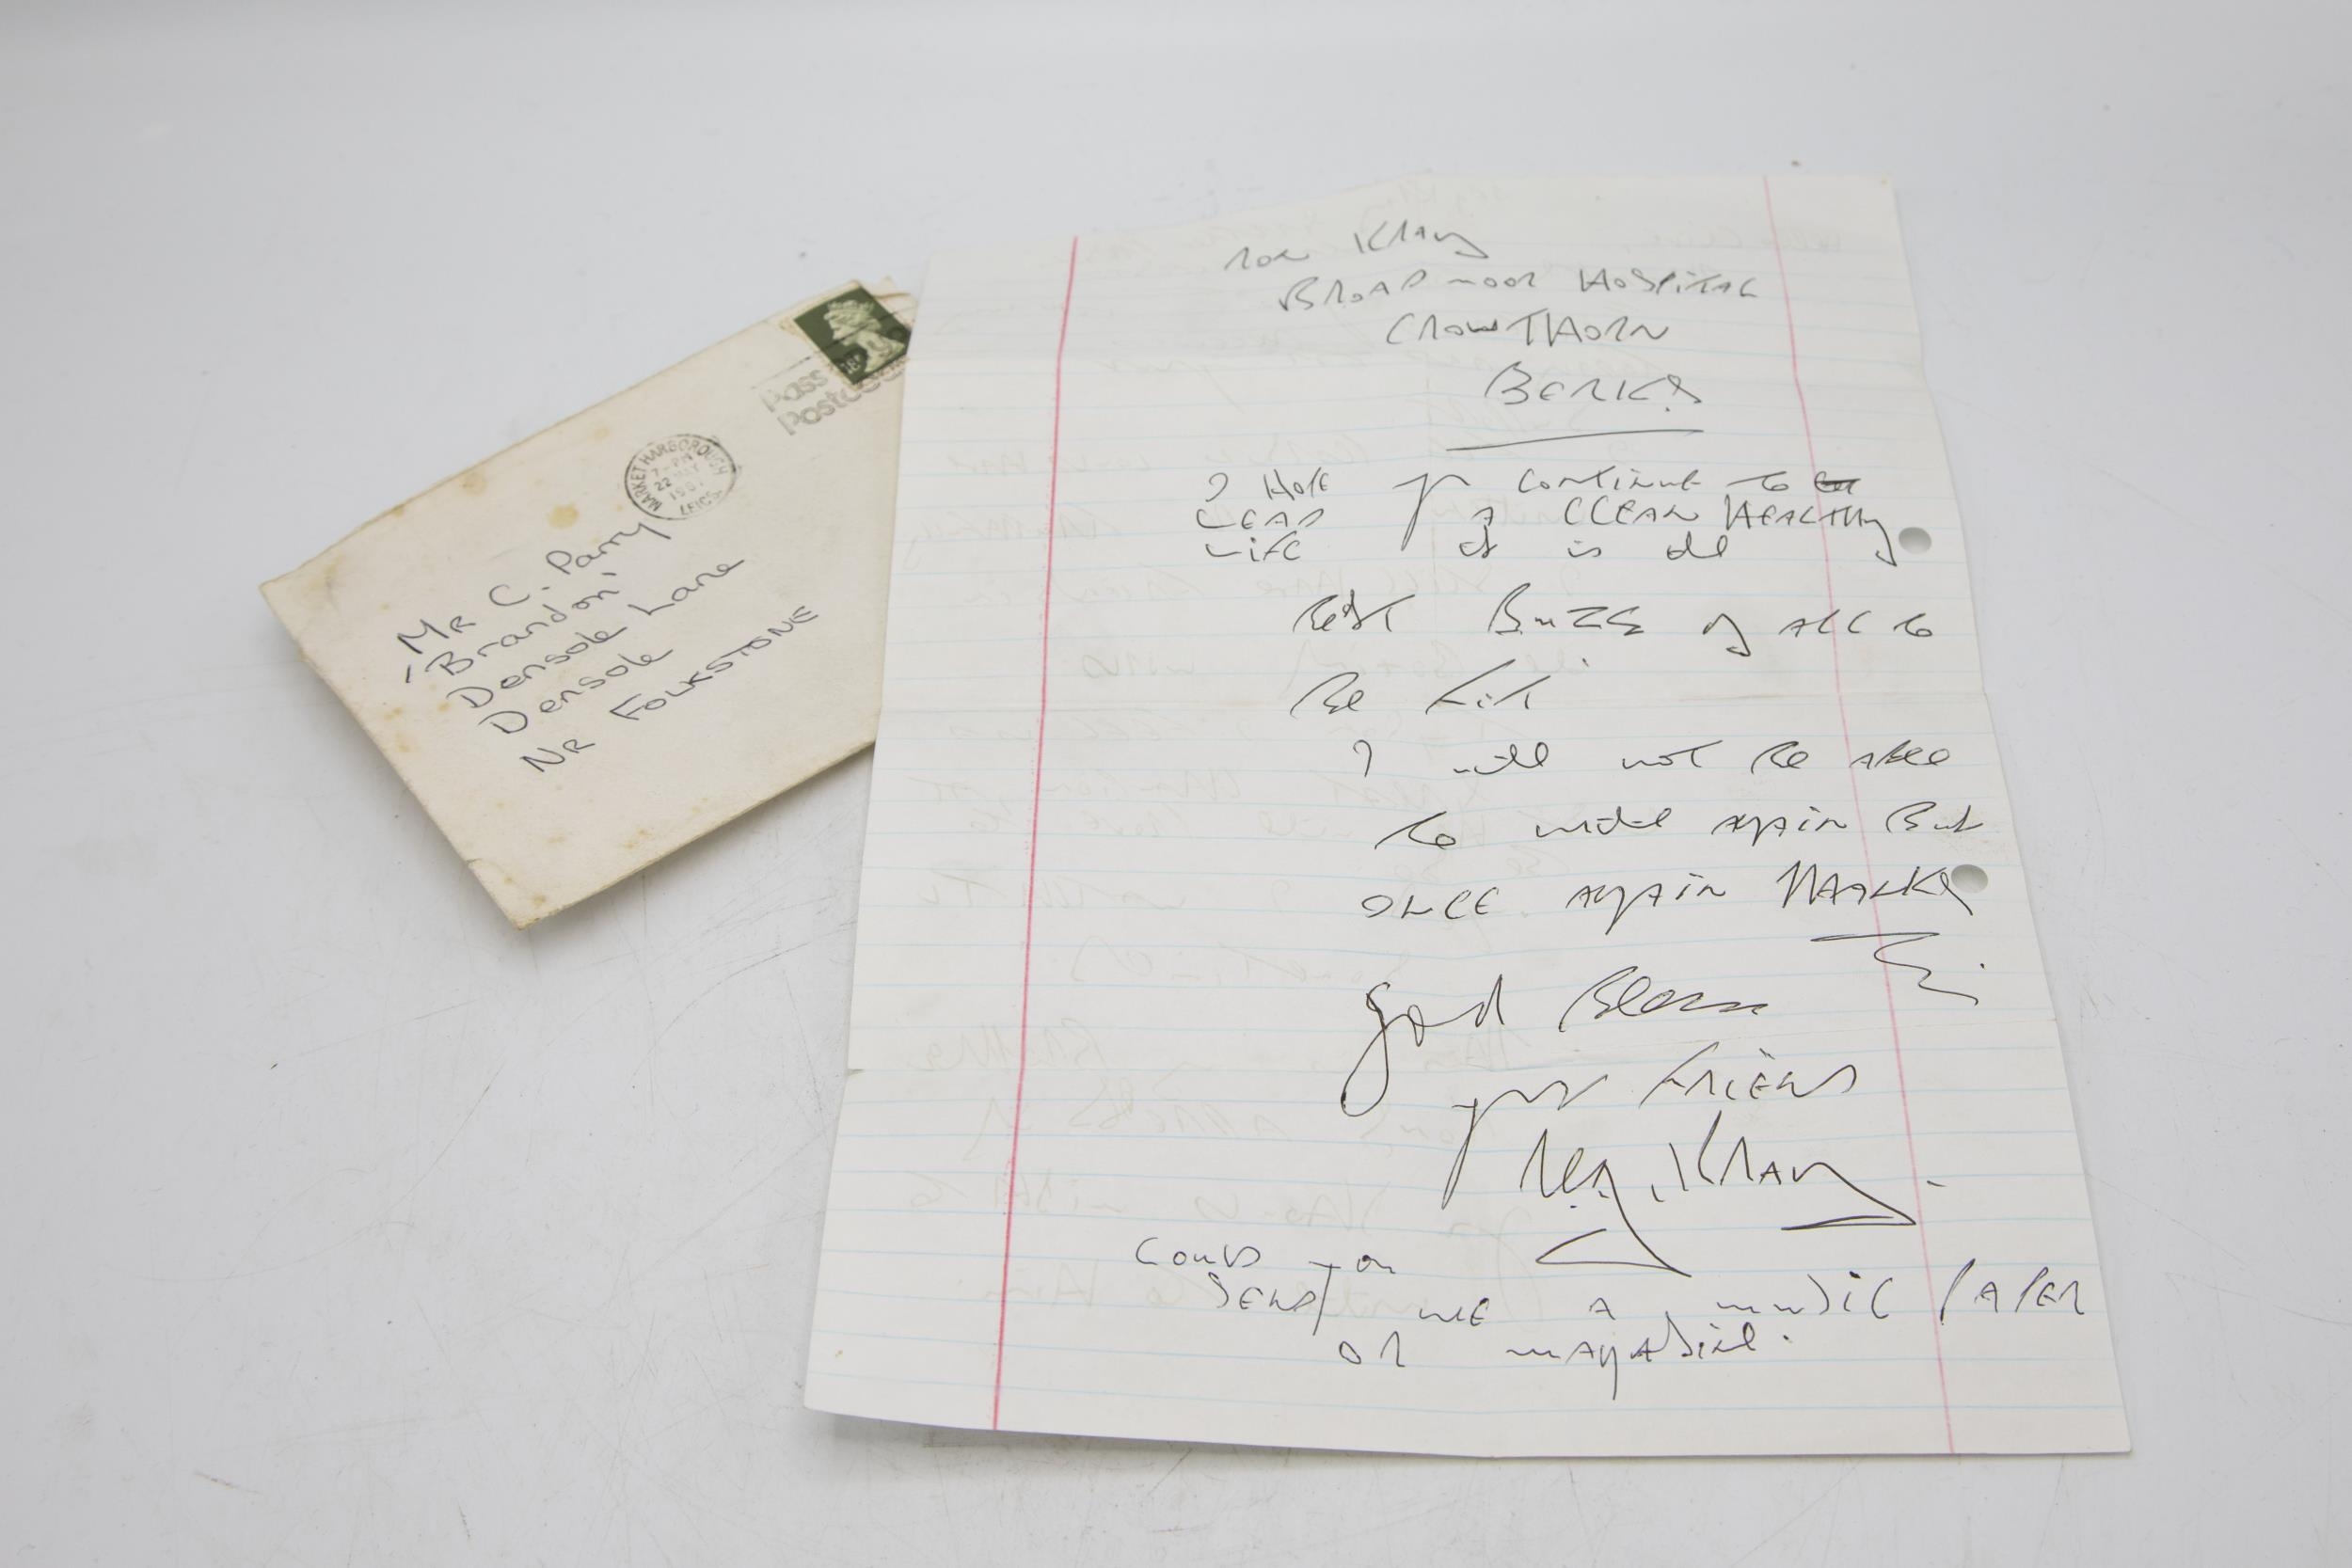 Pass
Postco
MARKET HARBOROUGH
7-PM
22 MAY
198
LEICS
MR C. Parry
'Brandon'
Densole Lane
Densole
NR FOLKSTONE
Ron Kray
BROADMOOR HOSPITAL
CROWTHORN
BERKS
I HOPE you continue to
LEAD a CLEAN HEALTHY
LIFE it is the
BEST BuZZ of ALL to
Be Fit
I will not Be able
to write again But
ONCE AgAin THANKS
God Bless
your FRIEND
Reg. KRAy.
COULD you
SEND me A muSiC PAPER
OR magaSine.